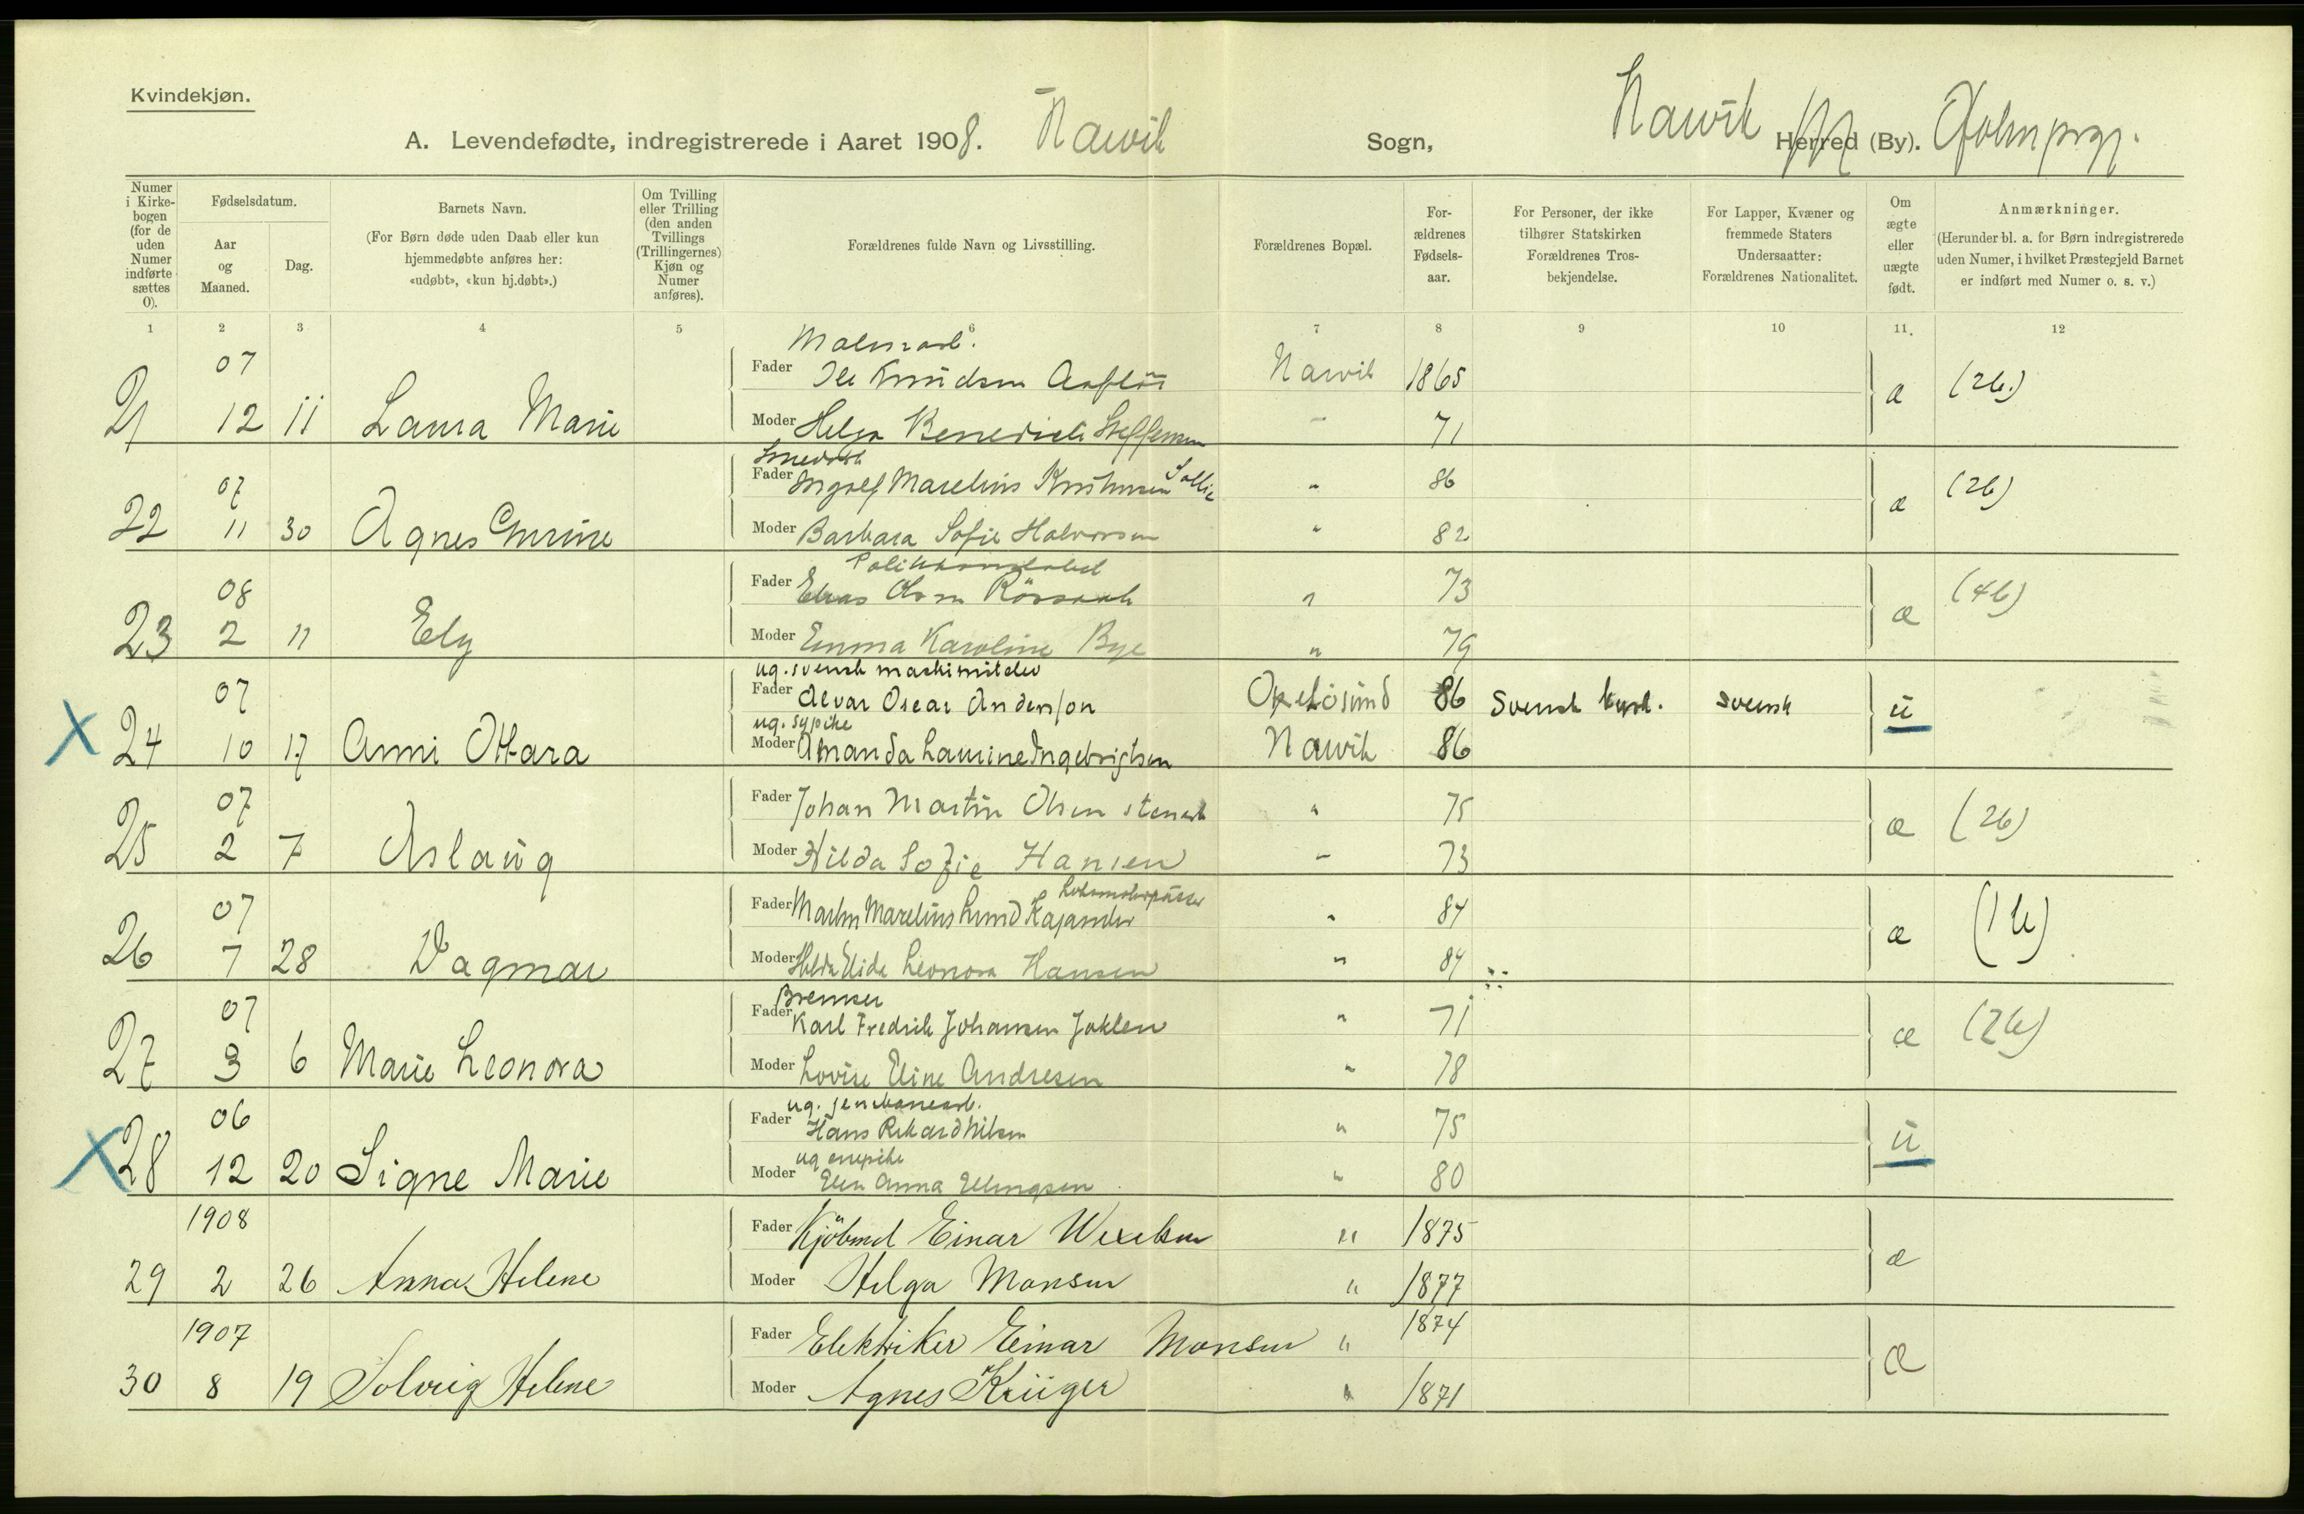 Kvindekjøn.
A. Levendefødte, indregistrerede i Aaret 1908. Narvik Sogn, Narvik Herred (By). Ofoten prgj.
Numer i Kirkebogen (for de uden Numer indførte sættes 0).
Fødselsdatum.
Aar og Maaned.
Dag.
Barnets Navn.
(For Børn døde uden Daab eller kun hjemmedøbte anføres her: «udøbt», «kun hj.døbt».)
Om Tvilling eller Trilling (den anden Tvillings (Trillingernes) Kjøn og Numer anføres).
Forældrenes fulde Navn og Livsstilling.
Forældrenes Bopæl.
Forældrenes Fødselsaar.
For Personer, der ikke tilhører Statskirken Forældrenes Trosbekjendelse.
For Lapper, Kvæner og fremmede Staters Undersaatter: Forældrenes Nationalitet.
Om ægte eller uægte født.
Anmærkninger.
(Herunder bl. a. for Børn indregistrerede uden Numer, i hvilket Præstegjeld Barnet er indført med Numer o. s. v.)
1 2 3 4 5 6 7 8 9 10 11. 12
Malmarb.
07 Fader Ole Knudsen Narvik 1865 æ (2b.)
21 12 11 Laura Marie Moder Helga Steffensen " 71
Smedarb
07 Fader Ingolf Marelius Kristiansen Sollie " 86 æ (2b)
22 11 30 Agnes Moder Barbara Sofie Halvorsen " 82
Politikonstabel
08 Fader Elias Olsen " 73 æ (4b)
23 2 11 Ely Moder Emma Karoline Bye " 79
ug. svensk maskinitelev
07 Fader Alvar Oscar Andersson Oxelösund 86 Svensk kyrk. Svensk u
ug. sypike
X 24 10 17 Anni Ottara Moder Amanda Laurine Ingebrigtsen Narvik 86
07 Fader Johan Martin Olsen stenarb " 75 æ (2b)
25 2 7 Aslaug Moder Hilda Sofie Hansen " 73
Lokomotivpusser
07 Fader Martin Marelius Lund Kajander " 84 æ (1b)
26 7 28 Dagmar Moder Hilda Elide Leonora Hansen " 84
Bremser
07 Fader Karl Fredrik Johansen Joklen " 71 æ (2b)
27 3 6 Marie Leonora Moder Lovise Eline Andresen " 78
ug. jernbanearb.
06 Fader Hans Rikard Nilsen " 75 u
ug
X 28 12 20 Signe Marie Moder Elen Anna Ellingsen " 80
1908 Fader Kjöbmd Einar Wexelsen " 1875 æ
29 2 26 Anna Helene Moder Helga Monsen " 1877
1907 Fader Elektriker Einar Monsen " 1874 æ
30 8 19 Solveig Helene Moder Agnes Krüger " 1871